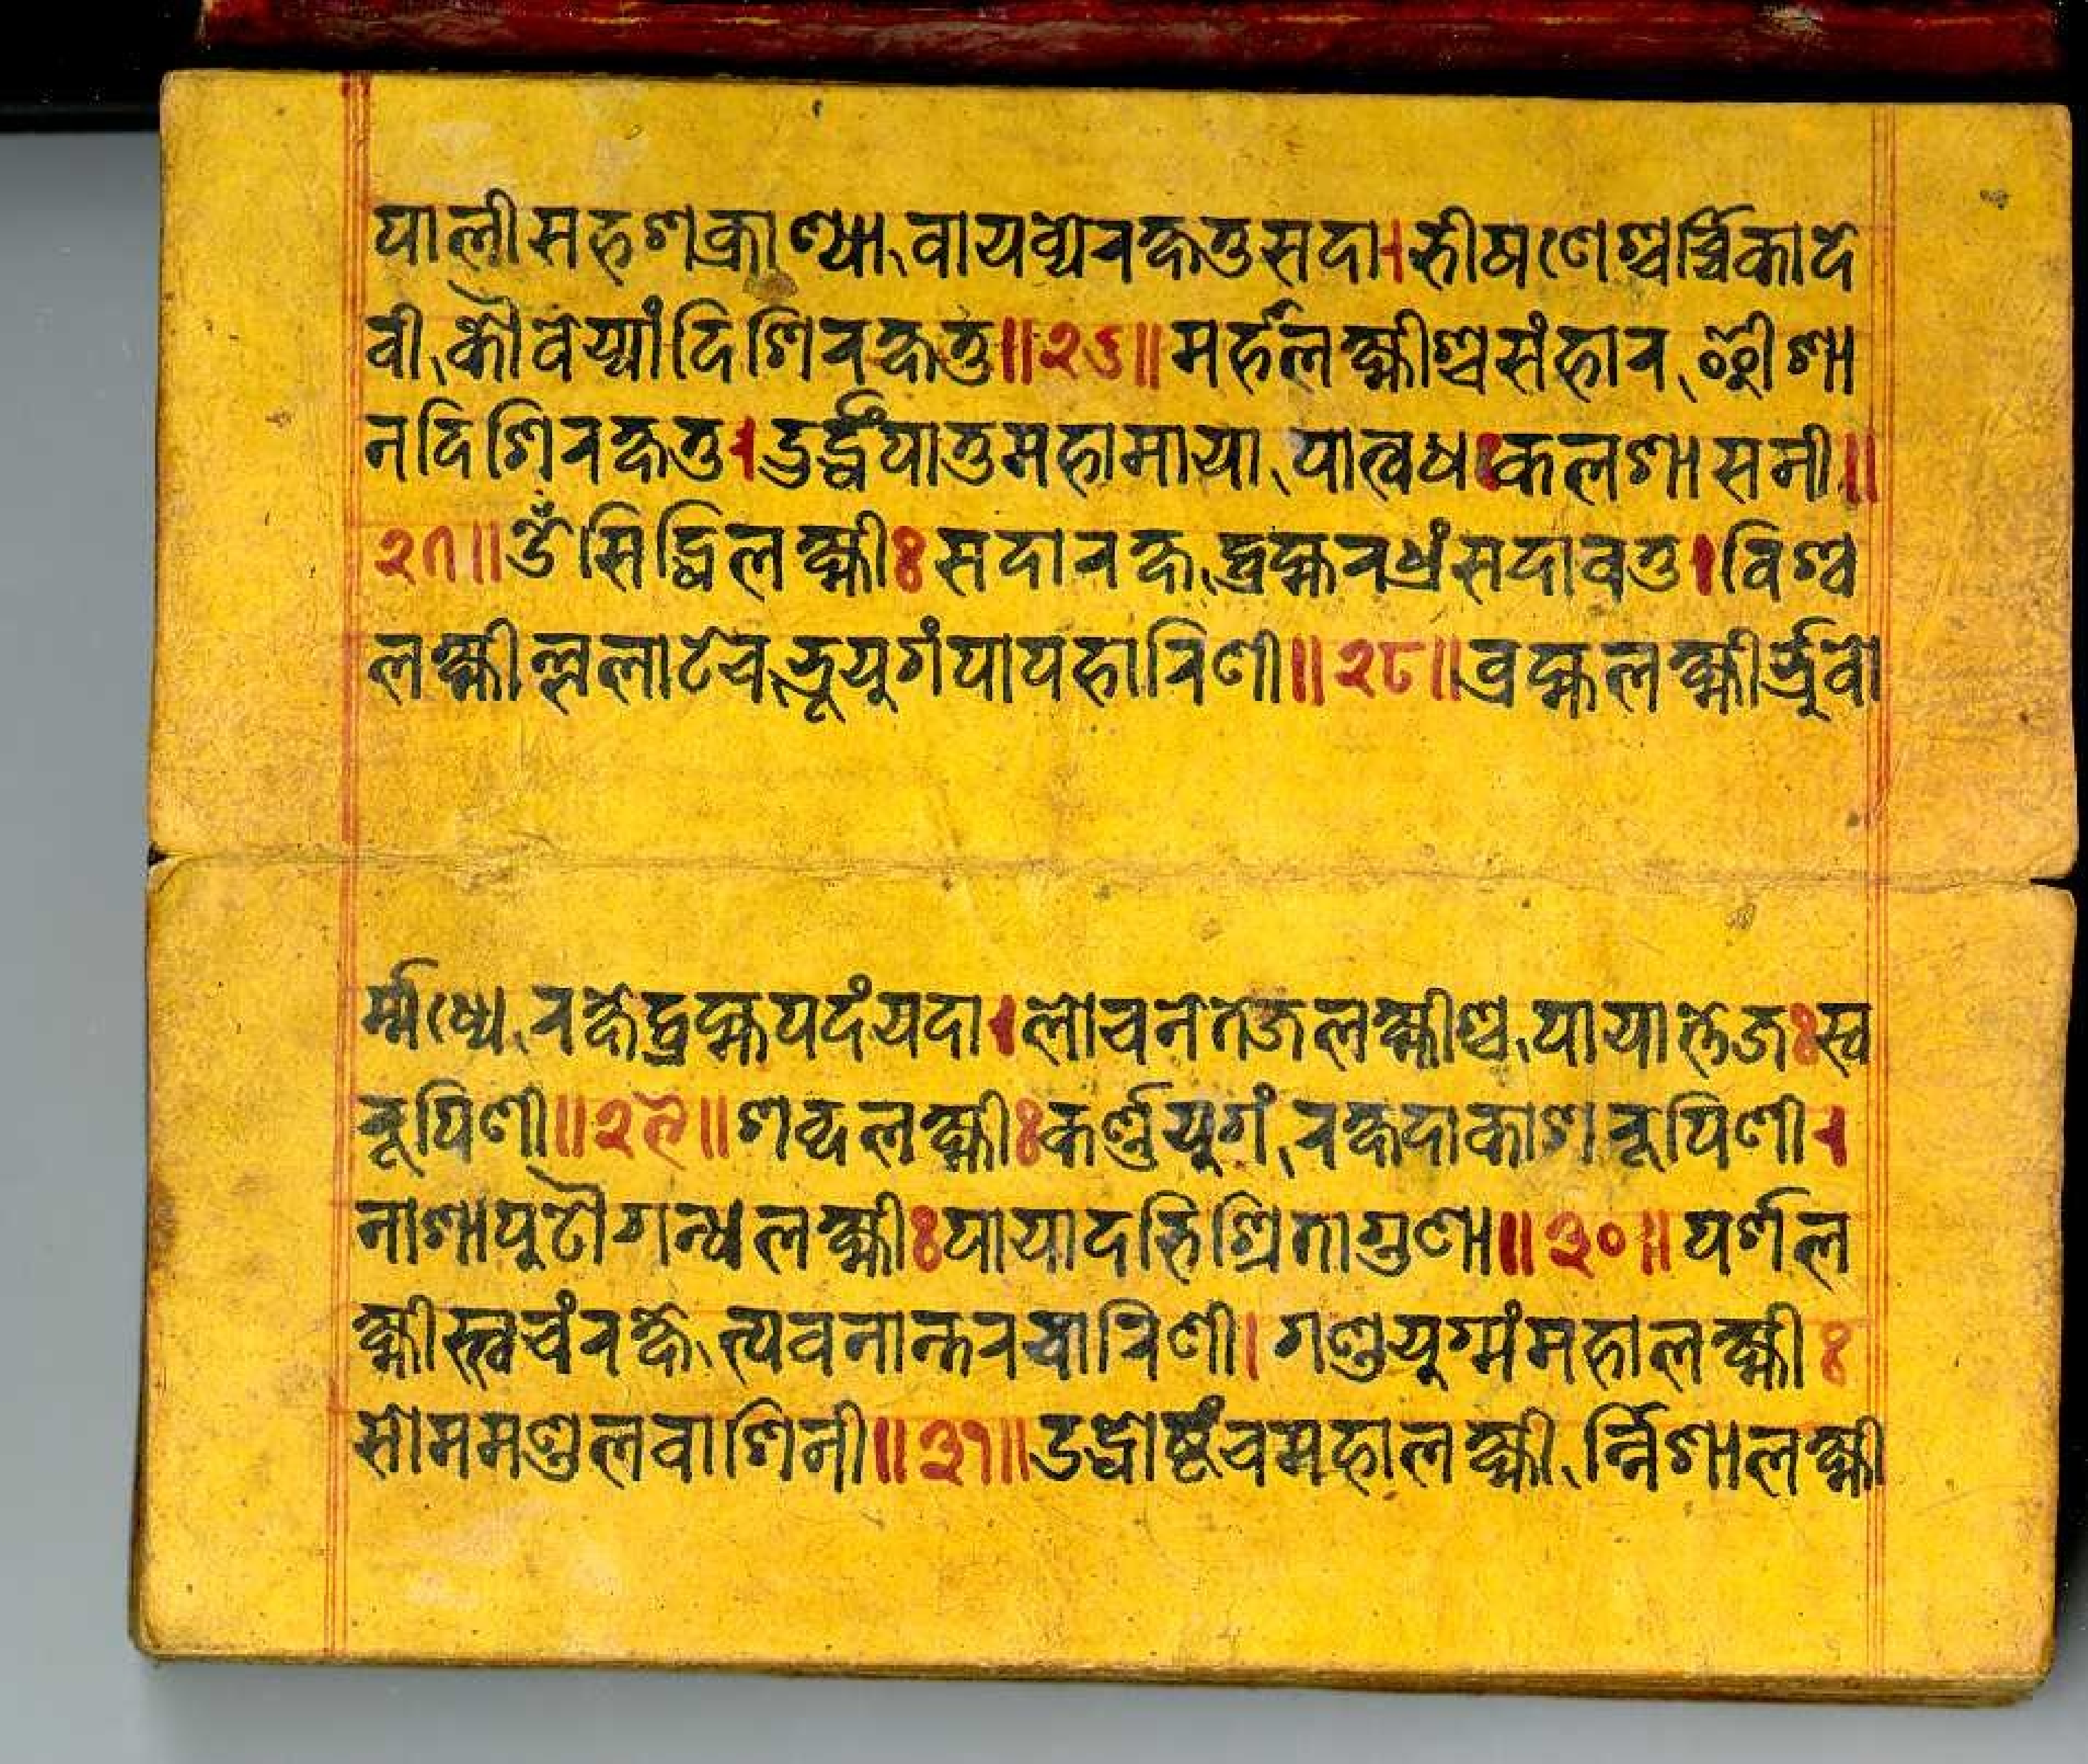 पालीसहशक्राण्या वायव्येरक्षतुसदा। भीषणेश्चर्च्चिकादे
वी कौवेर्य्यांदिशिरक्षतु॥२६॥ महलक्ष्मीश्चसंहार ईशा
नदिशिरक्षतु। उर्द्ध्वंपातुमहामाया पात्वधःकलशासनी॥
२७॥ उँसिद्धिलक्ष्मीः सदारक्ष द्ब्रह्मरध्रंसदावतु। विश्व
लक्ष्मील्ललाटेच भ्रूयुगंपापहारिणी॥२८॥ ब्रह्मलक्ष्मीर्भ्रुवो
र्म्मध्ये रक्षेद्ब्रह्मपदंयदा। लोचनेतेजलक्ष्मीश्च पायात्तेजःस्व
रूपिणी॥२९॥ शब्दलक्ष्मीः कर्ण्णयुगं रक्षदाकाशरूपिणी।
नाशापुटौगन्धलक्ष्मीः पायादभिश्रितागुणा॥३०॥ पर्शल
क्ष्मीस्त्वचंरक्षे त्पवनान्तरचारिणी। गण्डयुग्मंमहालक्ष्मीः
सोममण्डलवाशिनी॥३१॥ उद्धोष्टंचमहालक्ष्मी र्न्निशालक्ष्मी